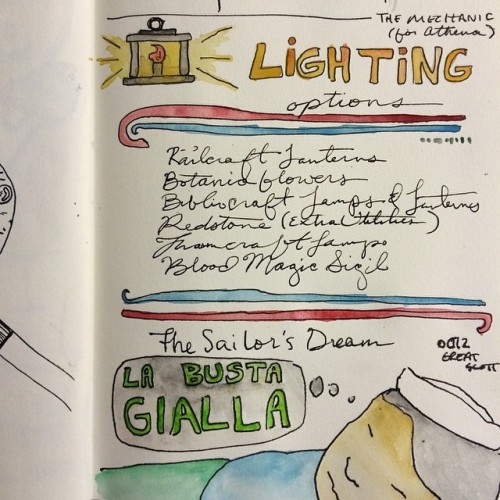 THE MECHANIC
(for Athena)
LiGHTiNG
options
Railcraft Lanterns
Botania flowers
Bibliocraft Lamps & Lanterns
Redstone (Extra Utilities)
Thaumcraft Lamps
Blood Magic Sigil
The Sailor's Dream
GREAT
SCOTT
LA BUSTA
GIALLA